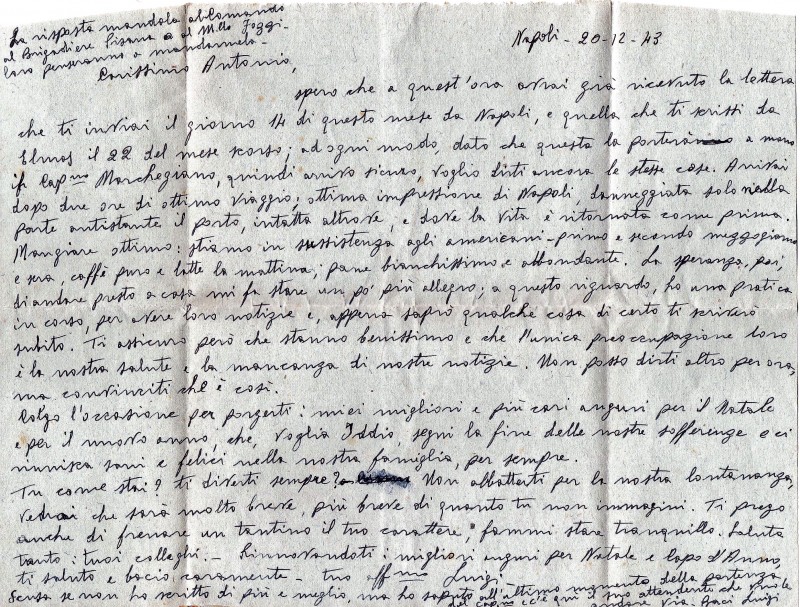 La risposta mandala al Comando
al Brigadiere Pisana o al M.llo Foggi.
loro penseranno a mandarmela -
Napoli - 20-12-43
Carissimo Antonio,
spero che a quest'ora avrai già ricevuto la lettera
che ti inviai il giorno 14 di questo mese da Napoli, e quella che ti scrissi da
Elmas il 22 del mese scorso; ad ogni modo, dato che questa la porterà a mano
il Cap.no Marchegiano, quindi arrivo sicuro, voglio dirti ancora le stesse cose. Arrivai
dopo due ore di ottimo viaggio; ottima impressione di Napoli, danneggiata solo nella
parte antistante il porto, intatta altrove, e dove la vita è ritornata come prima.
Mangiare ottimo: stiamo in sussistenza agli americani - primo e secondo mezzogiorno
e sera, caffè puro e latte la mattina; pane bianchissimo e abbondante. La speranza, poi,
di andare presto a casa mi fa stare un po' più allegro; a questo riguardo, ho una pratica
in corso, per avere loro notizie e, appena saprò qualche cosa di certo ti scriverò
subito. Ti assicuro però che stanno benissimo e che l'unica preoccupazione loro
è la nostra salute e la mancanza di nostre notizie. Non posso dirti altro per ora,
ma convinciti che è così.
Colgo l'occasione per porgerti i miei migliori e più cari auguri per il Natale
e per il nuovo anno, che, voglia Iddio, segni la fine delle nostre sofferenze e ci
riunisca sani e felici nella nostra famiglia, per sempre.
Tu come stai? ti diverti sempre? Non abbatterti per la nostra lontananza,
vedrai che sarà molto breve, più breve di quanto tu non immagini. Ti prego
anche di frenare un tantino il tuo carattere, fammi stare tranquillo. Saluta
tanto i tuoi colleghi. - Rinnovandoti i migliori auguri per Natale e Capo d'Anno,
ti saluto e bacio caramente - tuo aff.mo Luigi -
Scusa se non ho scritto di più e meglio, ma ho saputo all'ultimo momento della partenza
del Cap.no c'è qui il tuo attendente che vuole
Baci Luigi